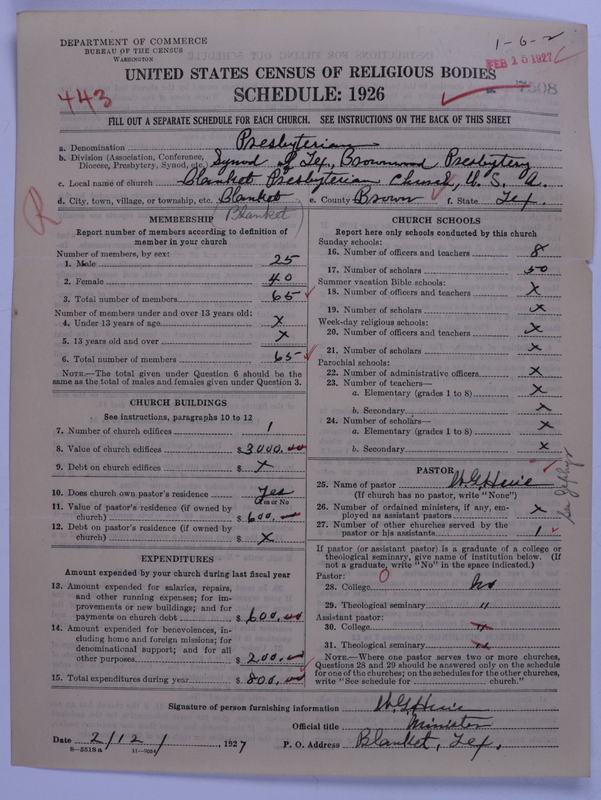 DEPARTMENT OF COMMERCE
BUREAU OF THE CENSUS
WASHINGTON
1-6-2
FEB 15 1927
UNITED STATES CENSUS OF RELIGIOUS BODIES
443
SCHEDULE: 1926
7508
FILL OUT A SEPARATE SCHEDULE FOR EACH CHURCH. SEE INSTRUCTIONS ON THE BACK OF THIS SHEET
a. Denomination Presbyterian
b. Division (Association, Conference, Diocese, Presbytery, Synod, etc.) Synod of Tex., Brownwood Presbytery
c. Local name of church Blanket Presbyterian Church, U. S. A.
d. City, town, village, or township, etc. Blanket e. County Brown f. State Tex.
R
(Blanket)
MEMBERSHIP
Report number of members according to definition of
member in your church
Number of members, by sex:
1. Male 25
2. Female 40
3. Total number of members 65
Number of members under and over 13 years old:
4. Under 13 years of age x
5. 13 years old and over x
6. Total number of members 65
NOTE.—The total given under Question 6 should be
same as the total of males and females given under Question 3.
CHURCH BUILDINGS
See instructions, paragraphs 10 to 12
7. Number of church edifices 1
8. Value of church edifices $ 3000.00
9. Debt on church edifices $ x
10. Does church own pastor's residence Yes
Yes or No
11. Value of pastor's residence (if owned by
church) $ 600.
12. Debt on pastor's residence (if owned by
church) $ x
EXPENDITURES
Amount expended by your church during last fiscal year
13. Amount expended for salaries, repairs,
and other running expenses; for im-
provements or new buildings; and for
payments on church debt $ 600.00
14. Amount expended for benevolences, in-
cluding home and foreign missions; for
denominational support; and for all
other purposes $ 200.00
15. Total expenditures during year $ 800.00
CHURCH SCHOOLS
Report here only schools conducted by this church
Sunday schools:
16. Number of officers and teachers 8
17. Number of scholars 50
Summer vacation Bible schools:
18. Number of officers and teachers x
19. Number of scholars x
Week-day religious schools:
20. Number of officers and teachers x
21. Number of scholars x
Parochial schools:
22. Number of administrative officers x
23. Number of teachers—
a. Elementary (grades 1 to 8) x
b. Secondary x
24. Number of scholars—
a. Elementary (grades 1 to 8) x
b. Secondary x
PASTOR
25. Name of pastor
(If church has no pastor, write "None")
26. Number of ordained ministers, if any, em-
ployed as assistant pastors x
27. Number of other churches served by the
pastor or his assistants 1
If pastor (or assistant pastor) is a graduate of a college or
theological seminary, give name of institution below. (If
not a graduate, write "No" in the space indicated.)
Pastor: 0
28. College No
29. Theological seminary "
Assistant pastor:
30. College "
31. Theological seminary "
NOTE.—Where one pastor serves two or more churches,
Questions 28 and 29 should be answered only on the schedule
for one of the churches; on the schedules for the other churches,
write "See schedule for church."
Signature of person furnishing information
Official title Minister
Date 2/12/, 1927 P. O. Address Blanket, Tex.
8—5518 a 11—9054